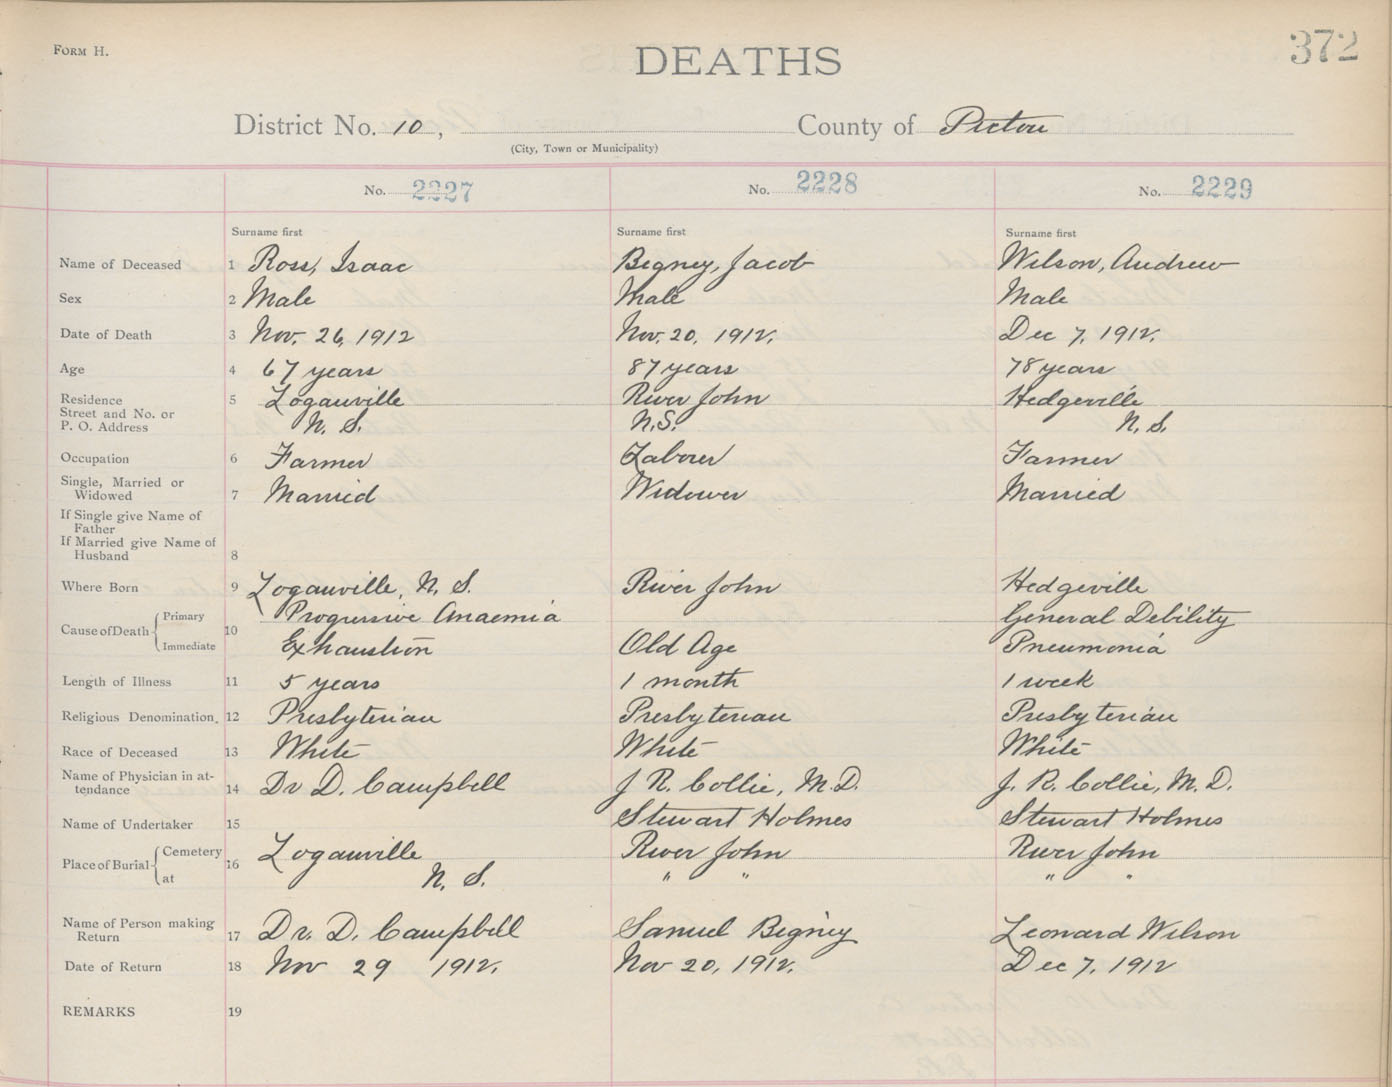 FORM H.
DEATHS
372
District No. 10, County of Pictou
(City, Town or Municipality)
No. 2227 No. 2228 No. 2229
Surname first Surname first Surname first
Name of Deceased 1 Ross, Isaac Bigney, Jacob Wilson, Andrew
Sex 2 Male Male Male
Date of Death 3 Nov. 26, 1912 Nov. 20, 1912. Dec 7, 1912.
Age 4 67 years 87 years 78 years
Residence 5 Loganville River John Hedgeville
Street and No. or
P. O. Address N. S. N.S. N. S.
Occupation 6 Farmer Laborer Farmer
Single, Married or
Widowed 7 Married Widower Married
If Single give Name of
Father
If Married give Name of
Husband 8
Where Born 9 Loganville, N. S. River John Hedgeville
Cause of Death Primary 10 Progressive Anaemia General Debility
Immediate Exhaustion Old Age Pneumonia
Length of Illness 11 5 years 1 month 1 week
Religious Denomination. 12 Presbyterian Presbyterian Presbyterian
Race of Deceased 13 White White White
Name of Physician in at-
tendance 14 Dr D. Campbell J R. Collie, M.D. J. R. Collie, M.D.
Name of Undertaker 15 Stewart Holmes Stewart Holmes
Place of Burial Cemetery 16 Loganville River John River John
at N. S. " " " "
Name of Person making
Return 17 Dr. D. Campbell Samuel Bigney Leonard Wilson
Date of Return 18 Nov 29 1912. Nov 20, 1912. Dec 7, 1912
REMARKS 19